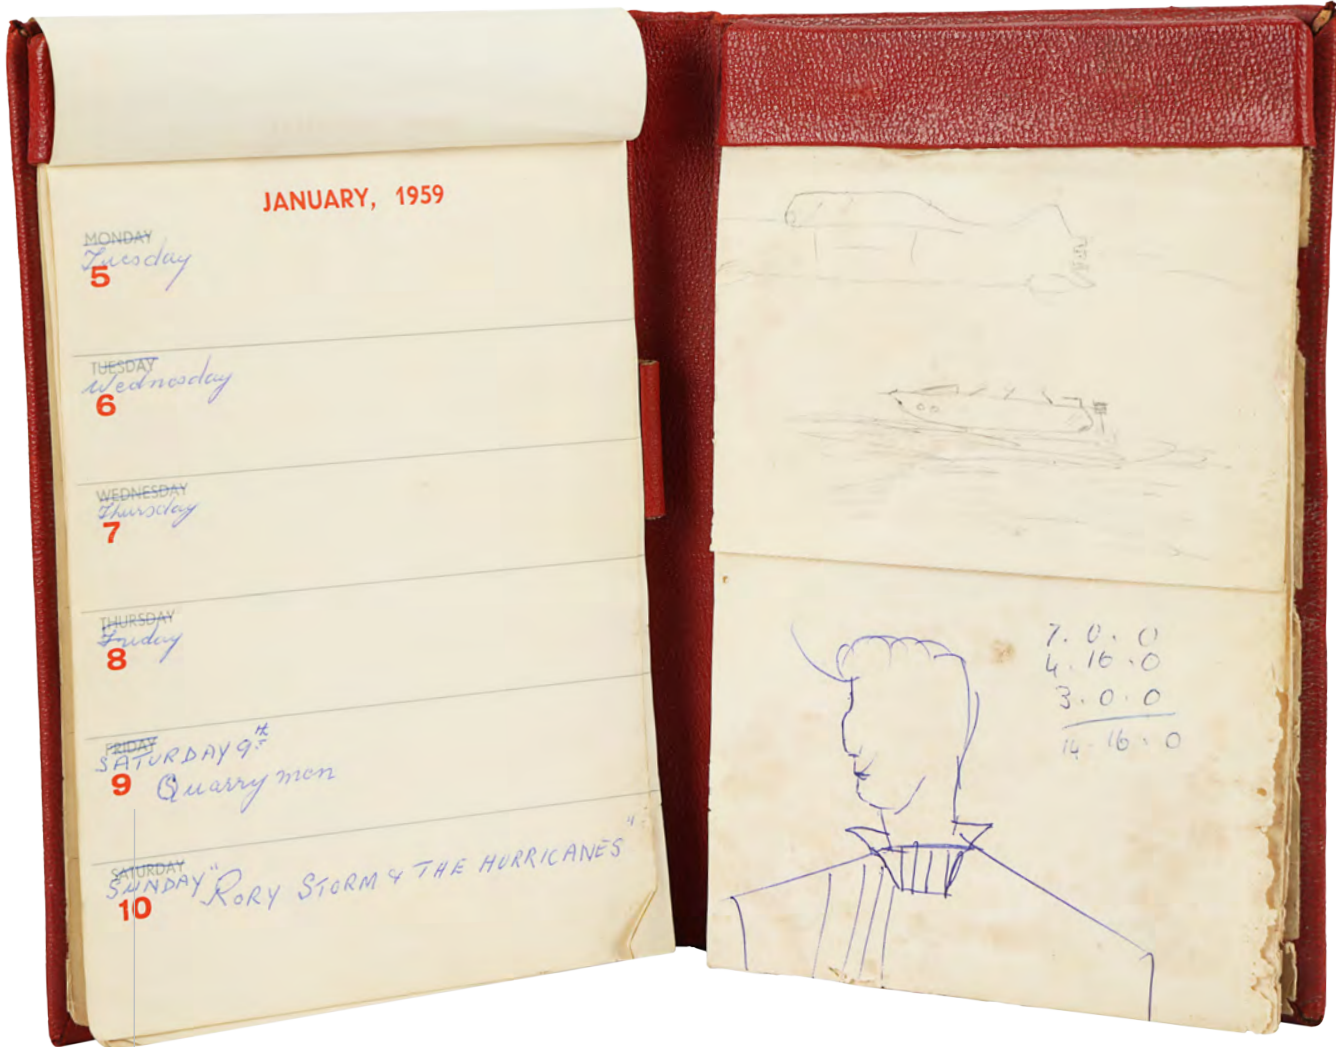 JANUARY, 1959
MONDAY
Tuesday
5
TUESDAY
Wednesday
6
WEDNESDAY
Thursday
7
THURSDAY
Friday
8
FRIDAY
SATURDAY 9th
9 Quarrymen
SATURDAY
SUNDAY "RORY STORM & THE HURRICANES"
10
7. 0. 0
4. 16. 0
3. 0. 0
14. 16. 0